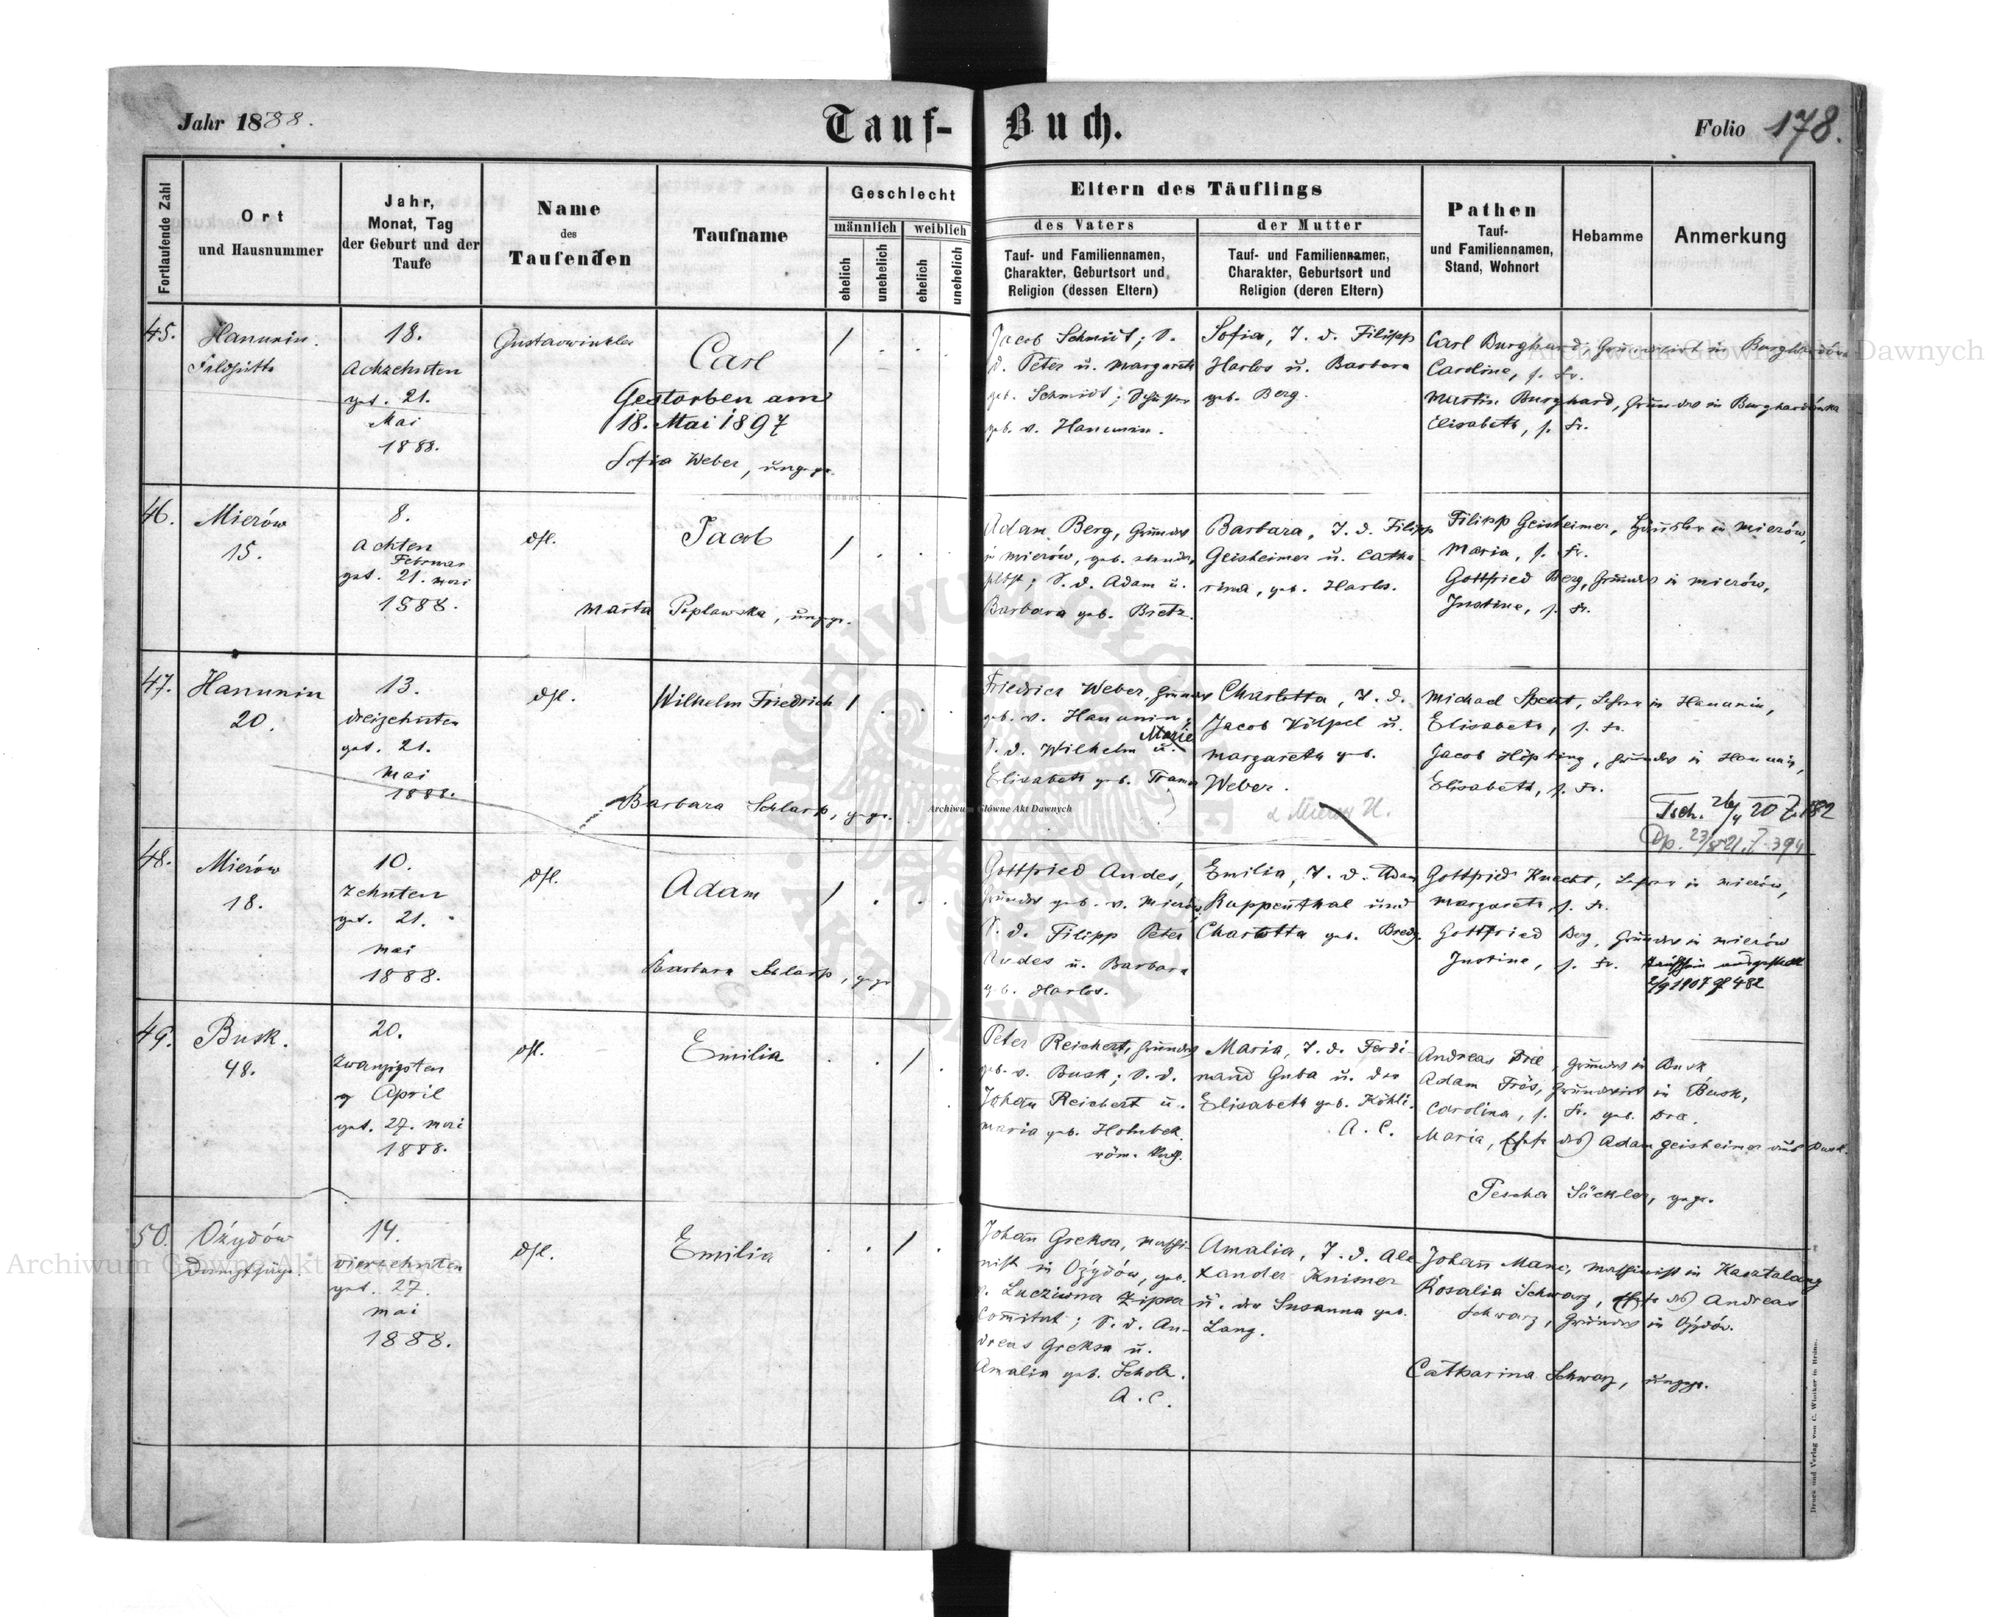 Jahr 1888.
Tauf-Buch.
Folio 178.
Fortlaufende Zahl
Ort
und Hausnummer
Jahr,
Monat, Tag
der Geburt und der
Taufe
Name
des
Taufenden
Taufname
Geschlecht
männlich
weiblich
ehelich
unehelich
ehelich
unehelich
Eltern des Täuflings
des Vaters
Tauf- und Familiennamen,
Charakter, Geburtsort und
Religion (dessen Eltern)
der Mutter
Tauf- und Familiennamen,
Charakter, Geburtsort und
Religion (deren Eltern)
Pathen
Tauf-
und Familiennamen,
Stand, Wohnort
Hebamme
Anmerkung
45.
Hanunin.
18.
Achzehnten
get. 21.
Mai
1888.
Gustav Winkler
Carl
Gestorben am
18. Mai 1897
Sofia Weber, ungepr.
/
Jacob Schmidt; S.
d. Peter u. Margareth
geb. Schmidt;
geb. v. Hanunin.
Sofia, T. d. Filipp
Harlos u. Barbara
geb. Berg.
Carl Burghard, Grundwirt in
Caroline, s. Fr.
Martin Burghard, Grundw in
Elisabeth, s. Fr.
46.
Mierów
15.
8.
Achten
Februar
get. 21. Mai
1888.
dsl.
Jacob
Marta Poplawska, ungepr.
/
Adam Berg, Grundw
in Mierów, geb.
S. d. Adam u.
Barbara geb. Bretz.
Barbara, T. d. Filipp
Geisheimer u. Catha-
rina, geb. Harlos.
Filipp Geisheimer, Häusler in Mierów
Maria, s. Fr.
Gottfried Berg, Grundw in Mierów,
Justine, s. Fr.
47.
Hanunin
20.
13.
dreizehnten
get. 21.
Mai
1888.
dsl.
Wilhelm Friedrich
Barbara Schlarp, gepr.
/
Friedrich Weber, Grundw
geb. v. Hanunin;
S. d. Wilhelm u. Marie
Elisabeth geb.
Charlotta, T. d.
Jacob Kölpel u.
Margaretha geb.
Weber.
Michael Specht, Lehrer in Hanunin,
Elisabeth, s. Fr.
Jacob Höpting, Grundw in Hanunin,
Elisabeth, s. Fr.
48.
Mierów
18.
10.
Zehnten
get. 21.
Mai
1888.
dsl.
Adam
Barbara Schlarp, gepr
/
Gottfried Andes,
Grundw geb. v. Mierów
S. d. Filipp Peter
Andes u. Barbara
geb. Harlos.
Emilia, T. d. Adam
Ruppenthal und
Charlotta geb.
Gottfried Knecht, Lehrer in Mierów,
Margareth, s. Fr.
Gottfried Berg, Grundw in Mierów
Justine, s. Fr.
49.
Busk.
48.
20.
Zwanzigsten
April
get. 27. Mai
1888.
dsl.
Emilia
/
Peter Reichert, Grundw
geb. v. Busk; S. d.
Johañ Reichert u.
Maria geb.
röm. kath.
Maria, T. d. Ferdi-
nand Guba u. der
Elisabeth geb. Köhli.
A. C.
Andreas Dre, Grundw in Busk
Adam Frös, Grundwirt in Busk,
Carolina, s. Fr. geb. Dre.
Maria, Ehefr. des Adam Geisheimer aus Busk.
Säckler, gepr.
50.
Ożydów
Dampfsäge.
14.
vierzehnten
get. 27.
Mai
1888.
dsl.
Emilia
/
Johañ Greksa, Maschi-
nist in Ożydów, geb.
Zipser
Comitat; S. d. An-
dreas Greksa u.
Amalia geb. Scholz.
A. C.
Amalia, T. d. Ale
xander Knismer
u. der Susanna geb.
Lang.
Johañ Manc, Maschinist in
Rosalia Schwarz, Ehefr. des Andreas
Schwarz, Grundw in Ożydów.
Catharina Schwarz, ungepr.
Archiwum Główne Akt Dawnych
Druck und Verlag von C. Winiker in Brünn.